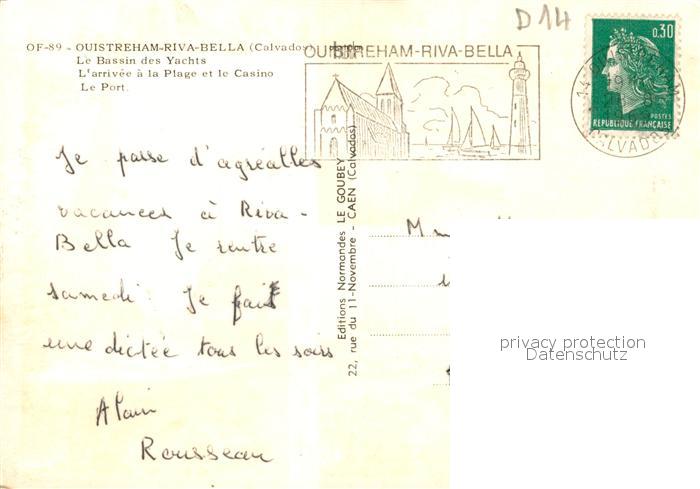 D14
OF-89 - OUISTREHAM-RIVA-BELLA (Calvados)
Le Bassin des Yachts
L'arrivée à la Plage et le Casino
Le Port.
OUISTREHAM-RIVA-BELLA
0,30
POSTES
REPUBLIQUE FRANÇAISE
14 OUISTREHAM
CALVADOS
Je passe d'agréables
vacances à Riva-
Bella Je rentre
samedi Je fais
une dictée tous les soirs
Alain
Rousseau
Editions Normandes LE GOUBEY
22, rue du 11-Novembre - CAEN (Calvados)
privacy protection
Datenschutz